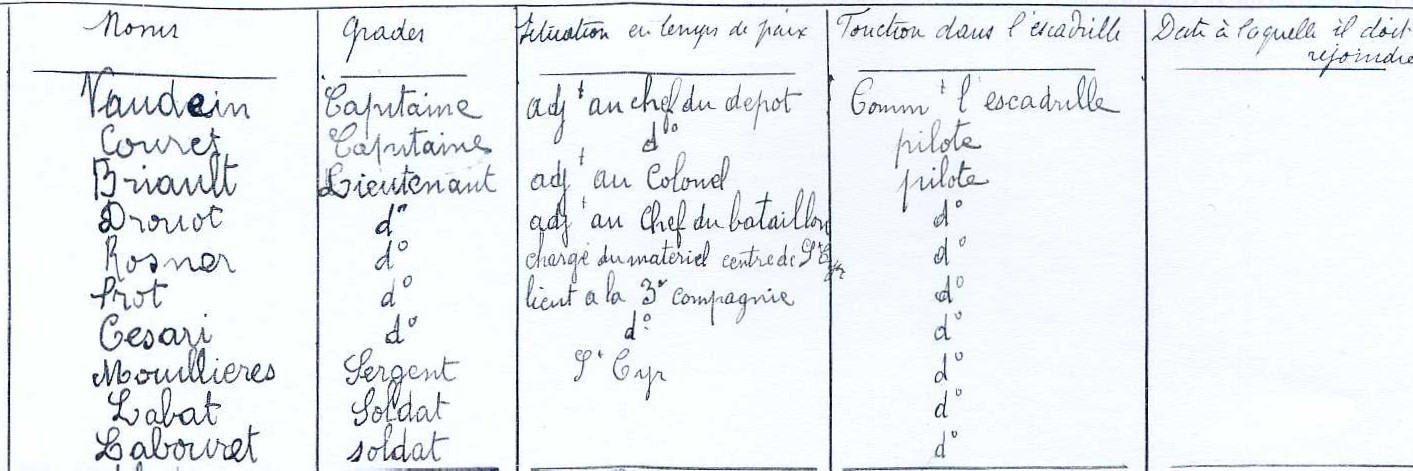 Noms Grades Situation en temps de paix Fonction dans l'escadrille Date à laquelle il doit
rejoindre
Vaudein Capitaine adjt au chef du depot Commt l'escadrille
Couret Capitaine d° pilote
Briault Lieutenant adjt au Colonel pilote
Drouot d° adjt au Chef du bataillon d°
Rosner d° chargé du materiel centre de St Cyr d°
Prot d° lieut a la 3e compagnie d°
Cesari d° d° d°
Mouillieres Sergent St Cyr d°
Labat Soldat d°
Labouret soldat d°